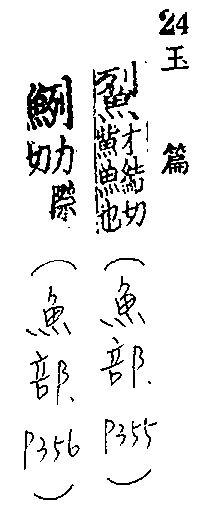 24 玉篇
才結切
鮆魚也
(魚部. P355)
鮤
力際
切
(魚部. P356)